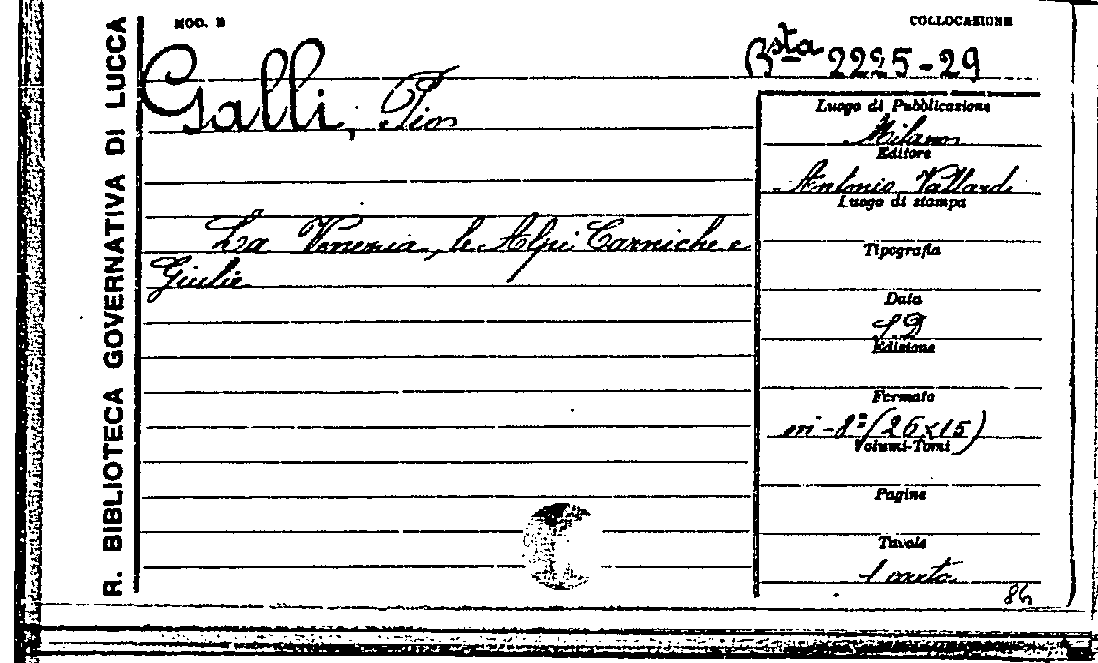 MOD. B
COLLOCAZIONE
Bsta 2295-29
R. BIBLIOTECA GOVERNATIVA DI LUCCA
Galli, Pio
La Venezia, le Alpi Carniche e
Giulie
Luogo di Pubblicazione
Milano
Editore
Antonio Vallardi
Luogo di stampa
Tipografia
Data
Edizione
Formato
in-8º (26x15)
Volumi-Tomi
Pagine
Tavole
1